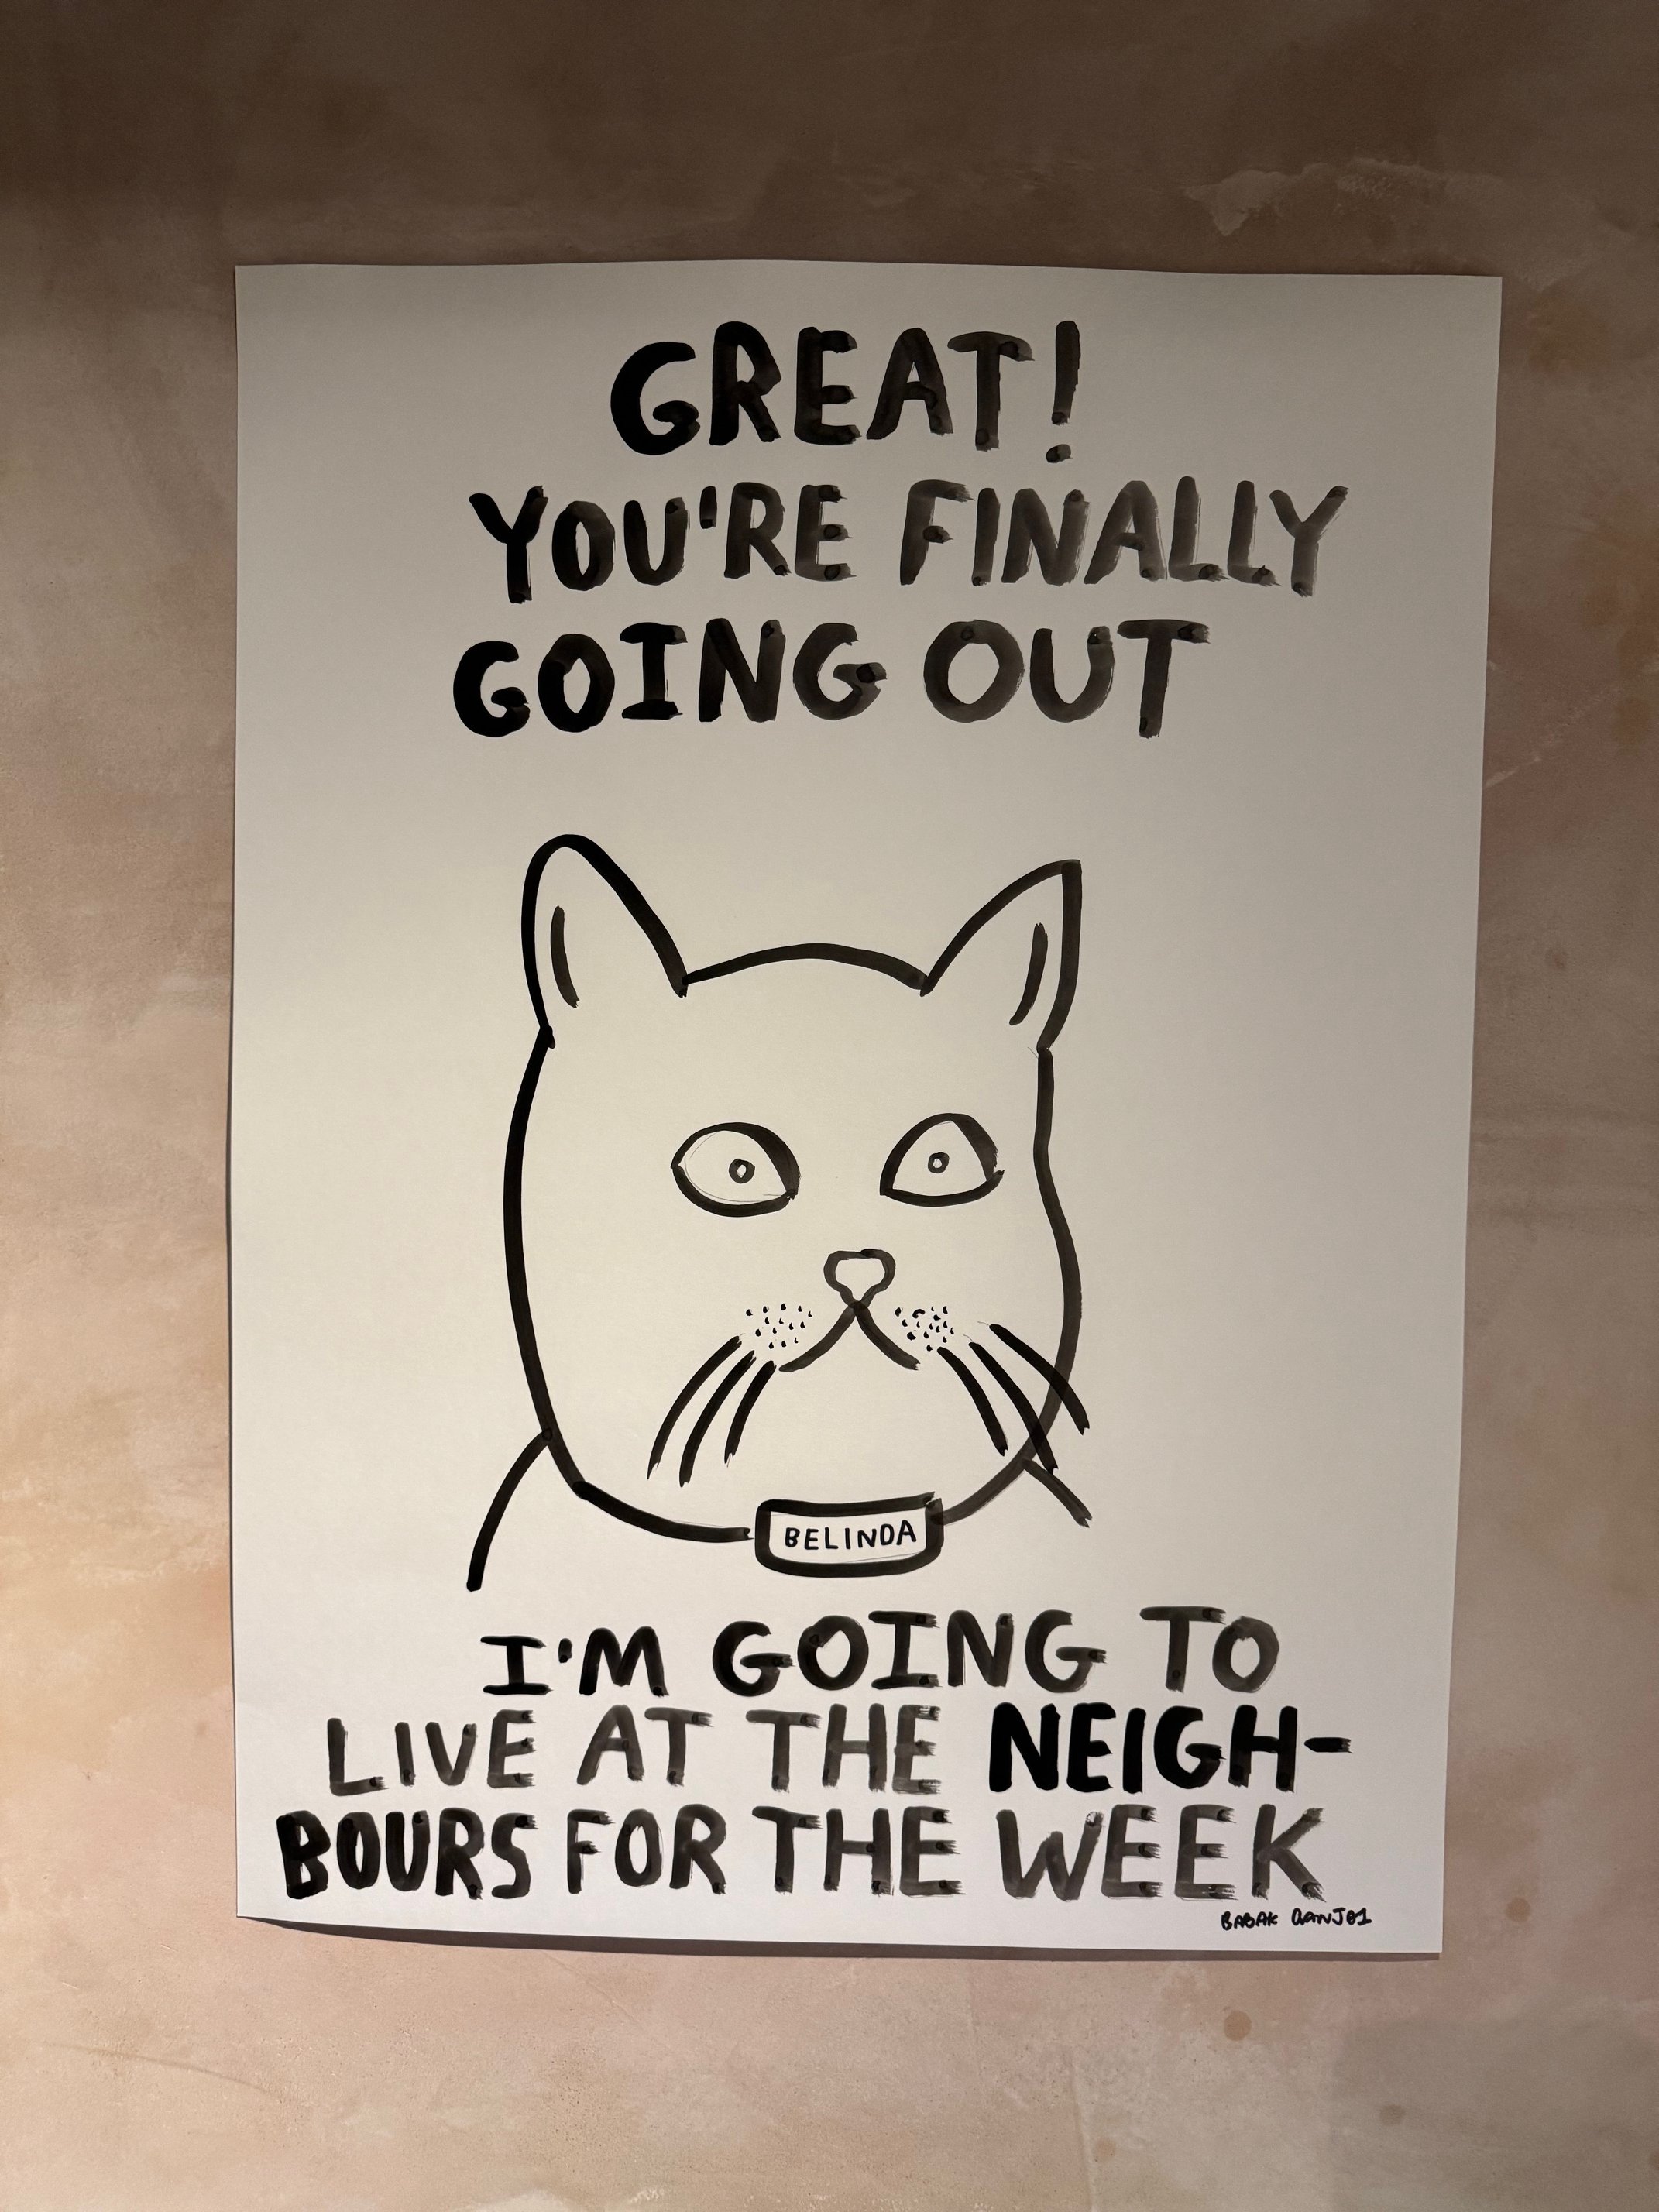 GREAT!
YOU'RE FINALLY
GOING OUT
BELINDA
I'M GOING TO
LIVE AT THE NEIGH-
BOURS FOR THE WEEK
BABAK GANJEI